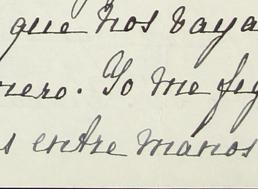 que nos vaya
nero. Yo me fig
s entre manos